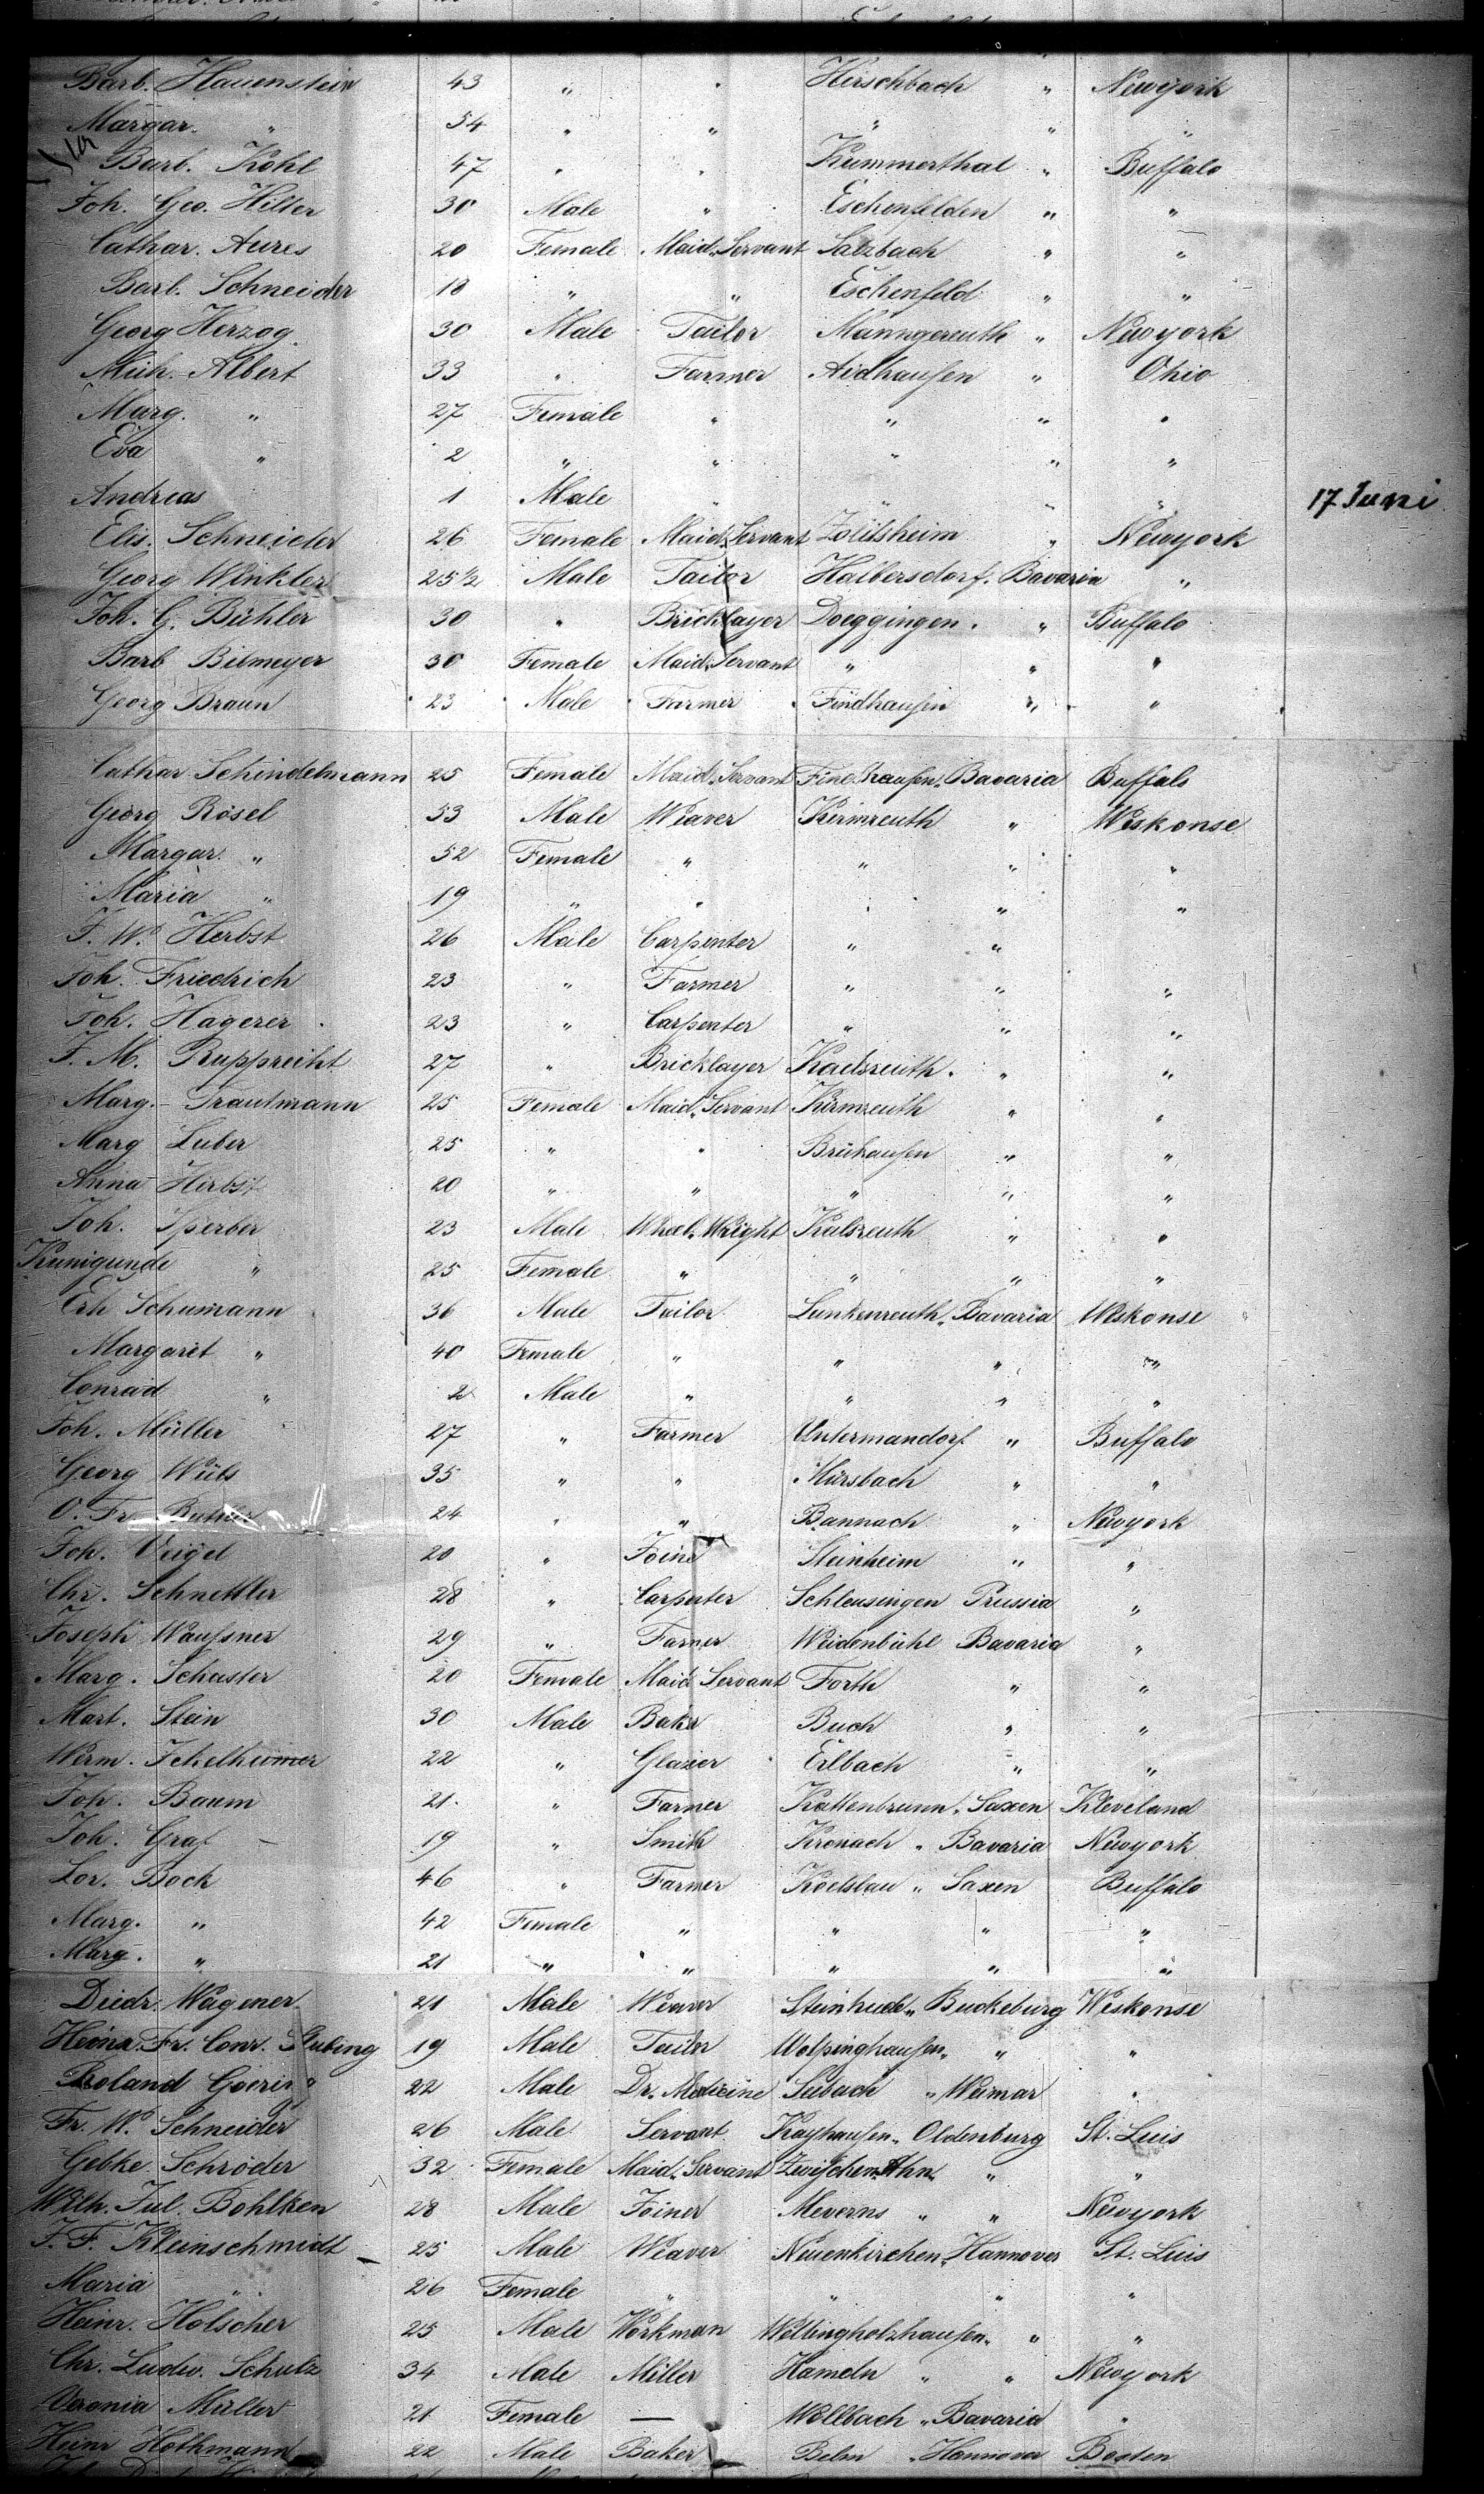 Barb. Hauenstein 43 " " Hirschbach " Newyork
Margar. " 54 " " " " "
Barb. Kohl 47 " " Kummerthal " Buffalo
Joh. Geo. Hiller 30 Male " Eschenfelden " "
Cathar. Aures 20 Female Maid Servant Salzbach " "
Barb. Schneider 18 " " Eschenfeld " "
Georg Herzog. 30 Male Tailor Manngereuth " Newyork
Mich. Albert 33 " Farmer Aidhausen " Ohio
Marg. " 27 Female " " " "
Eva " 2 " " " " "
Andreas 1 Male " " " " 17 Juni
Elis. Schneider 26 Female Maid Servant " Newyork
Georg Winkler 25 1/2 Male Tailor Haibersdorf. Bavaria "
Joh. G. Bühler 30 " Bricklayer Doeggingen. " Buffalo
Barb Bilmeyer 30 Female Maid Servant " " "
Georg Braun 23 Male Farmer Findhausen " "
Cathar Schindelmann 25 Female Maid Servant Bavaria Buffalo
Georg Rösel 53 Male Weaver Kirmreuth " Weskonse
Margar. " 52 Female " " " "
Maria " 19 " " " " "
F. W. Herbst 26 Male Carpenter " "
Joh. Friedrich 23 " Farmer " " "
Joh. Hagerer 23 " Carpenter " " "
J. M. Rupprecht 27 " Bricklayer " "
Marg. Trautmann 25 Female Maid Servant Kirmreuth " "
Marg Luber 25 " " " "
Anna Herbst 20 " " " " "
Joh. Sperber 23 Male Wheel Wright Kalsreuth " "
Kunigunde " 25 Female " " " "
Erh Schumann 36 Male Tailor Lunkenreuth Bavaria Weskonse
Margaret " 40 Female " " " "
Conrad " 2 Male " " " "
Joh. Müller 27 " Farmer Untermandorf " Buffalo
Georg 35 " " Mürsbach " "
O. Fr. 24 " " Bannach " Newyork
Joh. Veigel 20 " Steinheim " "
Chr. Schnettler 28 " Carpnter Schleusingen Prussia "
Joseph 29 " Farmer Weidenbühl Bavaria "
Marg. Schuster 20 Female Maid Servant Forth " "
Mart. Stein 30 Male Baker Buch " "
22 " Glazier Erlbach " "
Joh. Baum 21 " Farmer Kaltenbrunn " Saxen Kleveland
Joh. Graf 19 " Smith Kronach " Bavaria Newyork
Lor. Bock 46 " Farmer " Saxen Buffalo
Marg. " 42 Female " " " "
Marg. " 21 " " " " "
Diedr. Wagener 21 Male Weaver Steinhude " Buckeburg Weskonse
Heinr. Fr. Conr. Stubing 19 Male Tailor Wolpinghausen " " "
Roland 22 Male Dr. Medicine " Weimar "
Fr. W. Schneider 26 Male Servant Kayhausen " Oldenburg St. Luis
Gebke Schröder 32 Female Maid Servant Zwischen Ahn " "
Wilh. Jul. Bohlken 28 Male Joiner Meverns " " Newyork
J. F. Kleinschmidt 25 Male Weaver Neuenkirchen " Hannover St. Luis
Maria " 26 Female " " " "
Heinr. Holscher 25 Male Workman Wellingholzhausen " " "
Chr. Ludw. Schulz 34 Male Miller Hameln " " Newyork
Veronia Müller 21 Female — Wollbach " Bavaria "
Heinr Hothmann 22 Male Baker Belm " Hannover Bosten